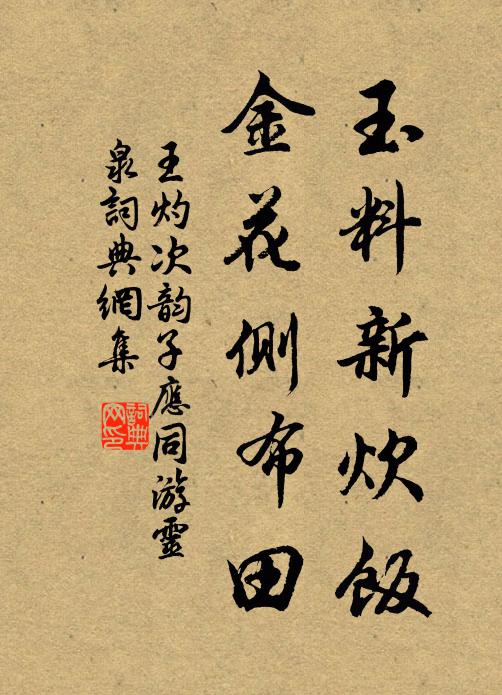 玉料新炊飯
金花側布田
王灼次韵子應同游靈
泉詞典網集
詞典
网印